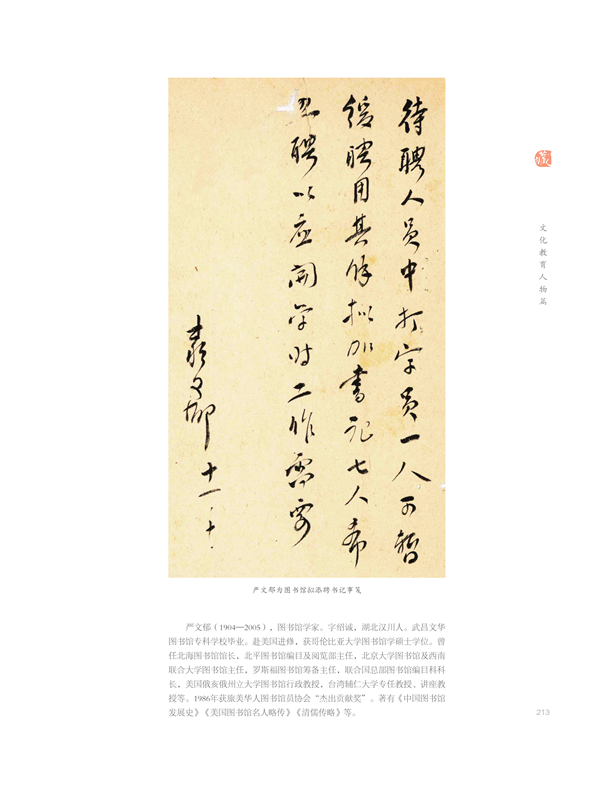 待聘人员中打字员一人可暂
缓聘用其余拟加书记七人希
迅聘以应开学时工作需要
严文郁 十一.十.
严文郁为图书馆拟添聘书记事笺
严文郁（1904—2005），图书馆学家。字绍诚，湖北汉川人。武昌文华
图书馆专科学校毕业。赴美国进修，获哥伦比亚大学图书馆学硕士学位。曾
任北海图书馆馆长，北平图书馆编目及阅览部主任，北京大学图书馆及西南
联合大学图书馆主任，罗斯福图书馆筹备主任，联合国总部图书馆编目科科
长，美国俄亥俄州立大学图书馆行政教授，台湾辅仁大学专任教授、讲座教
授等。1986年获旅美华人图书馆员协会“杰出贡献奖”。著有《中国图书馆
发展史》《美国图书馆名人略传》《清儒传略》等。
文化教育人物篇
213